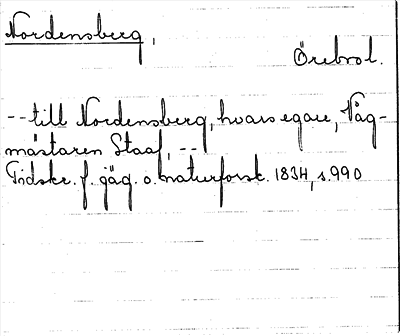 Nordensberg,
Örebrol.
--till Nordensberg, hvars egare, Våg-
mästaren Staaf, --
Tidskr. f. jäg. o. naturforsk. 1834, s. 990